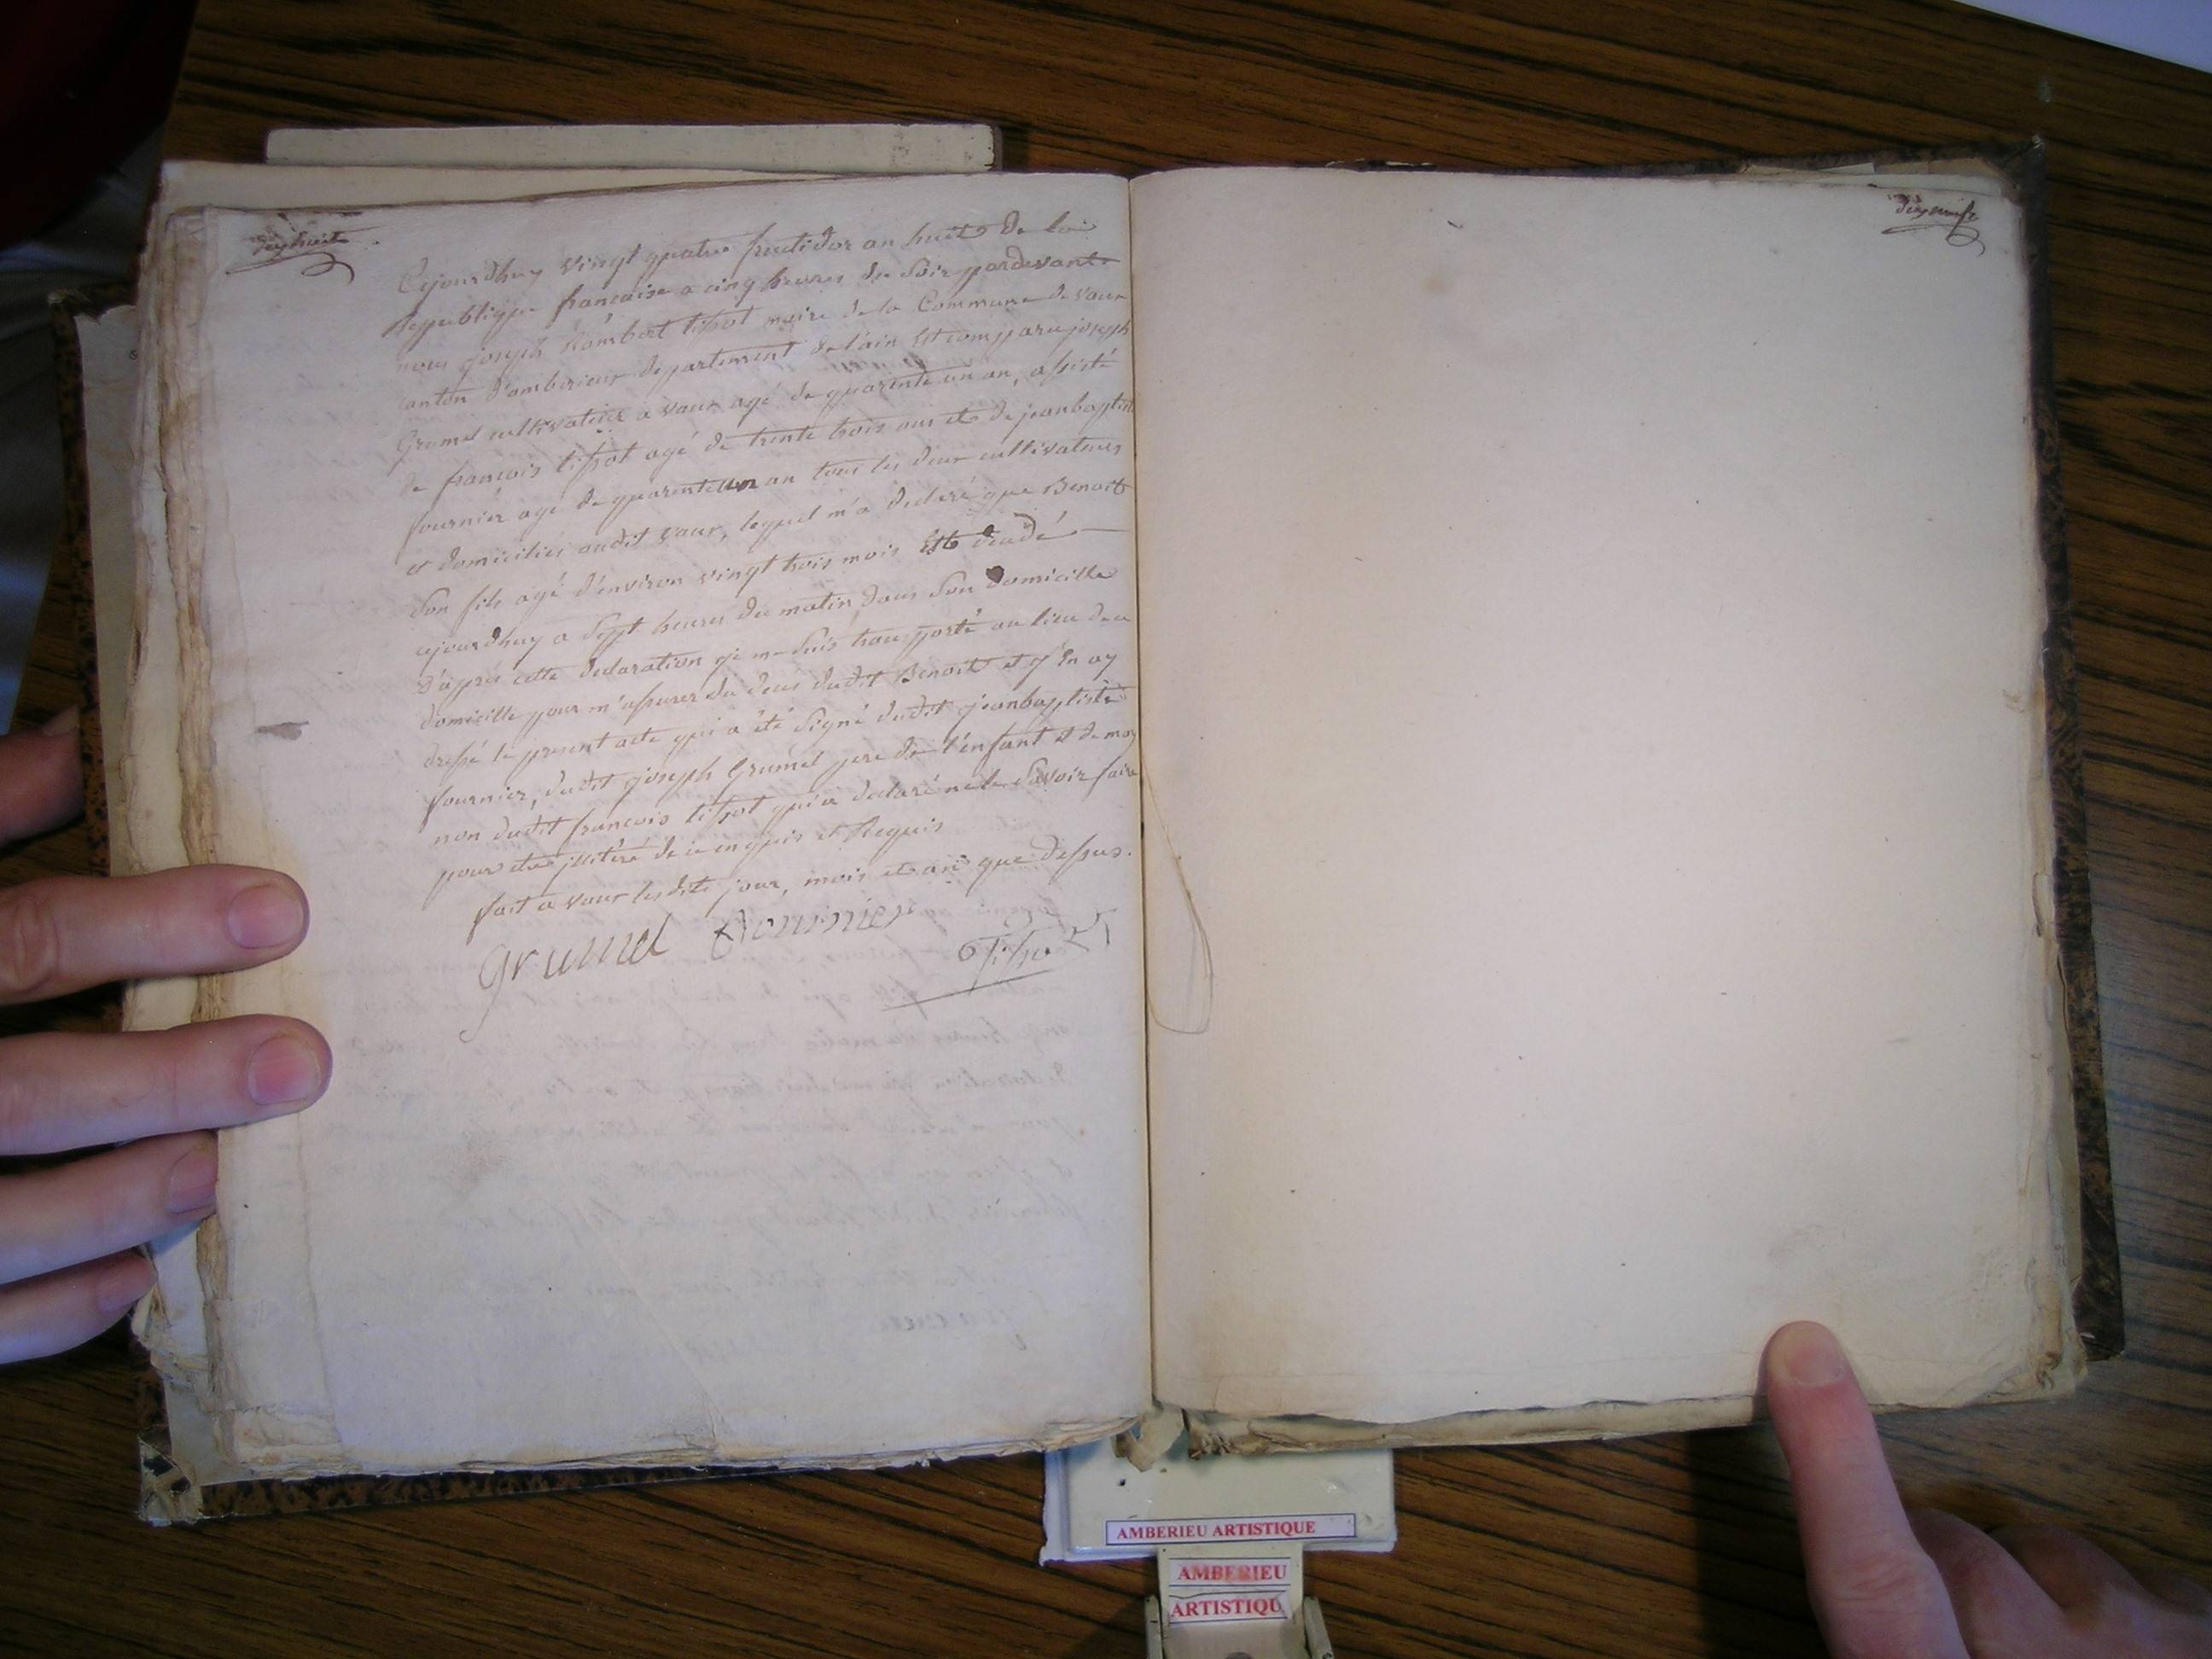 dixhuit
Cejourdhuy vingt quatre fructidor an huit de la
Republique francaise a cinq heures du soir pardevant
nous joseph Rambert tissot maire de la Commune de vaux
canton d'amberieux departement de l'ain Est comparu joseph
Grumel cultivateur a vaux agé de quarante un an, assisté
de francois tissot agé de trente trois ans et de jeanbaptiste
fournier agé de quarante un an tous les deux cultivateurs
et domiciliés audit vaux, lequel m'a declaré que Benoit
son fils agé d'environ vingt trois mois Est decedé
cejourdhuy a sept heures du matin dans son domicille
d'après cette declaration je me suis transporté au lieu de ce
domicille pour m'assurer du deces dudit Benoit et j'En ay
dressé le present acte qui a été signé dudit jeanbaptiste
fournier, dudit joseph Grumel pere de l'enfant et de moy
non dudit francois tissot qui a declaré ne le savoir faire
pour etre illitéré de ce enquis et Requis
fait a vaux lesdits jour, mois et an que dessus.
grumel fournier
Tissot
dixneuf
AMBERIEU ARTISTIQUE
AMBERIEU
ARTISTIQU